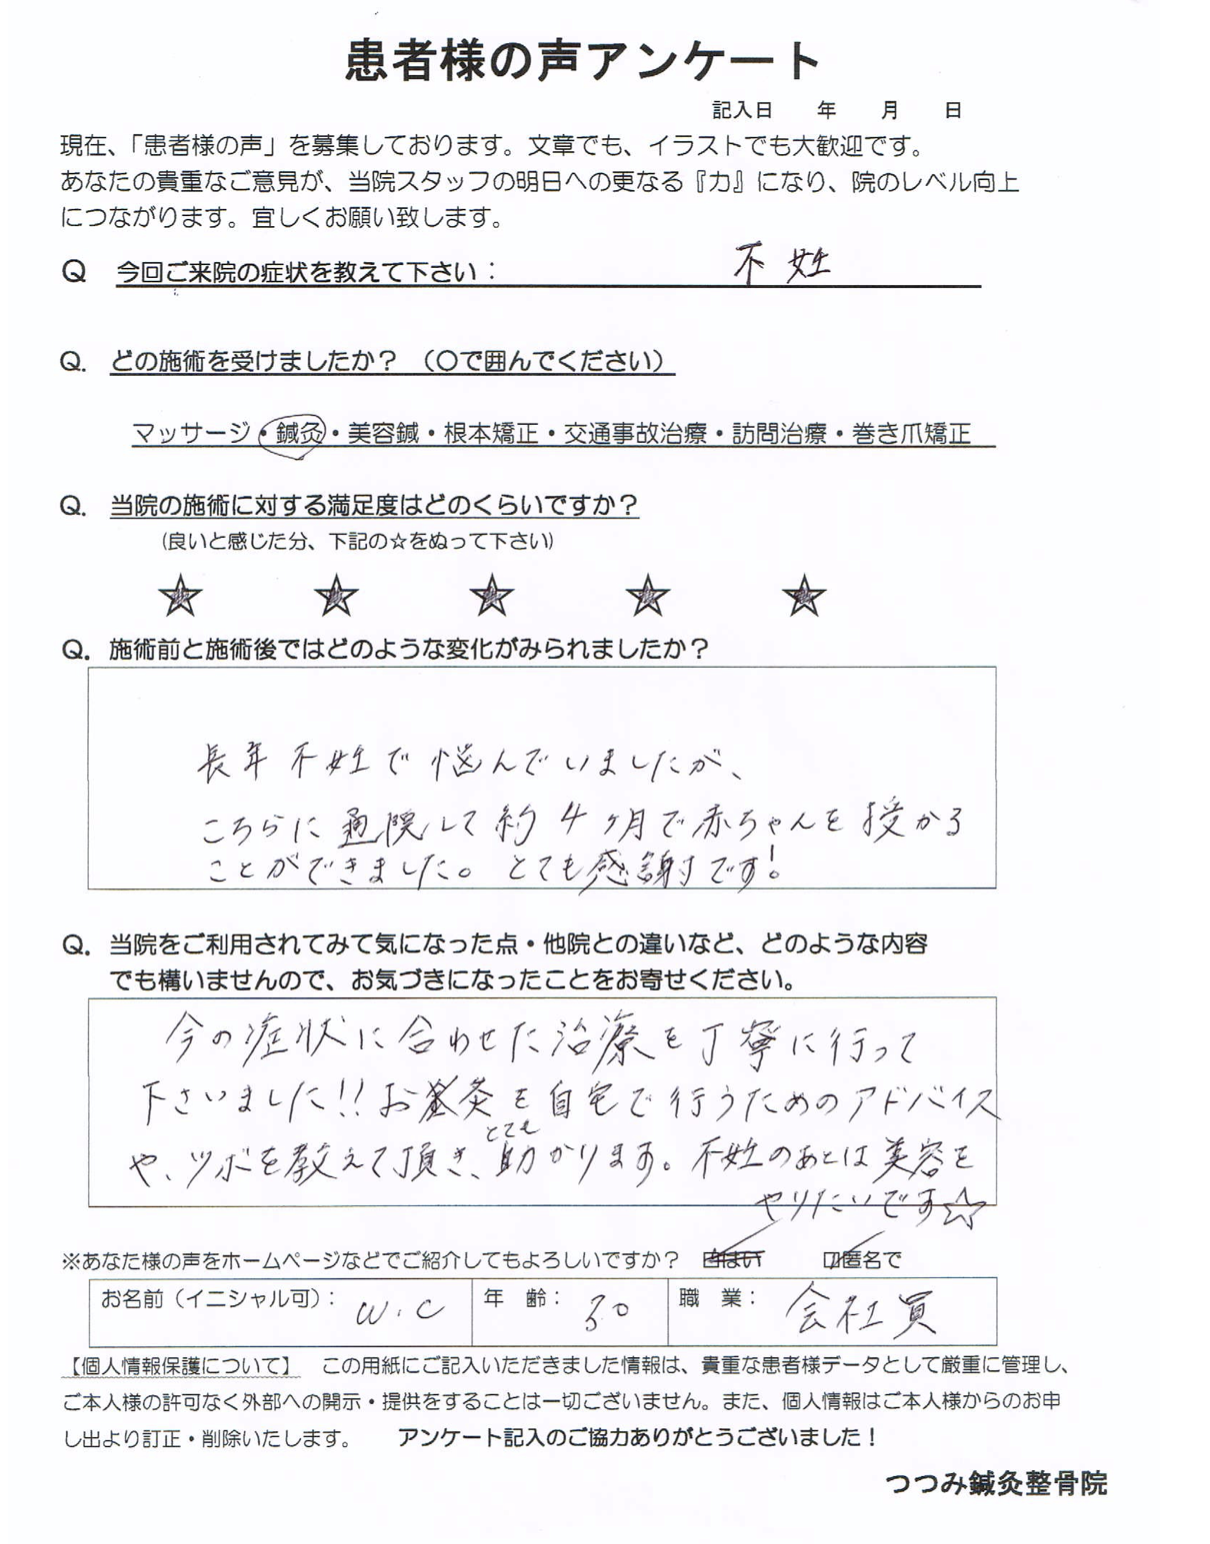 患者様の声アンケート
記入日　年　月　日
現在、「患者様の声」を募集しております。文章でも、イラストでも大歓迎です。
あなたの貴重なご意見が、当院スタッフの明日への更なる『力』になり、院のレベル向上
につながります。宜しくお願い致します。
Q　今回ご来院の症状を教えて下さい：　不妊
Q．どの施術を受けましたか？（〇で囲んでください）
マッサージ・鍼灸・美容鍼・根本矯正・交通事故治療・訪問治療・巻き爪矯正
Q．当院の施術に対する満足度はどのくらいですか？
（良いと感じた分、下記の☆をぬって下さい）
Q．施術前と施術後ではどのような変化がみられましたか？
長年不妊で悩んでいましたが、
こちらに通院して約4ヶ月で赤ちゃんを授かる
ことができました。とても感謝です！
Q．当院をご利用されてみて気になった点・他院との違いなど、どのような内容
でも構いませんので、お気づきになったことをお寄せください。
今の症状に合わせた治療を丁寧に行って
下さいました!!お灸を自宅で行うためのアドバイス
や、ツボを教えて頂き、とても助かります。不妊のあとは美容を
やりたいです☆
※あなた様の声をホームページなどでご紹介してもよろしいですか？　□はい　□匿名で
お名前（イニシャル可）：W.C　年　齢：30　職　業：会社員
【個人情報保護について】　この用紙にご記入いただきました情報は、貴重な患者様データとして厳重に管理し、
ご本人様の許可なく外部への開示・提供をすることは一切ございません。また、個人情報はご本人様からのお申
し出より訂正・削除いたします。　アンケート記入のご協力ありがとうございました！
つつみ鍼灸整骨院